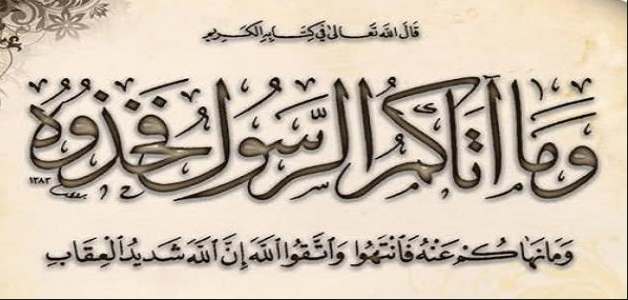 قَالَ اللهُ تَعَالَىٰ فِي كِتَابِهِ الْكَرِيمِ
وَمَا آتَاكُمُ الرَّسُولُ فَخُذُوهُ
١٣٨٣
وَمَا نَهَاكُمْ عَنْهُ فَانْتَهُوا وَاتَّقُوا اللَّهَ إِنَّ اللَّهَ شَدِيدُ الْعِقَابِ